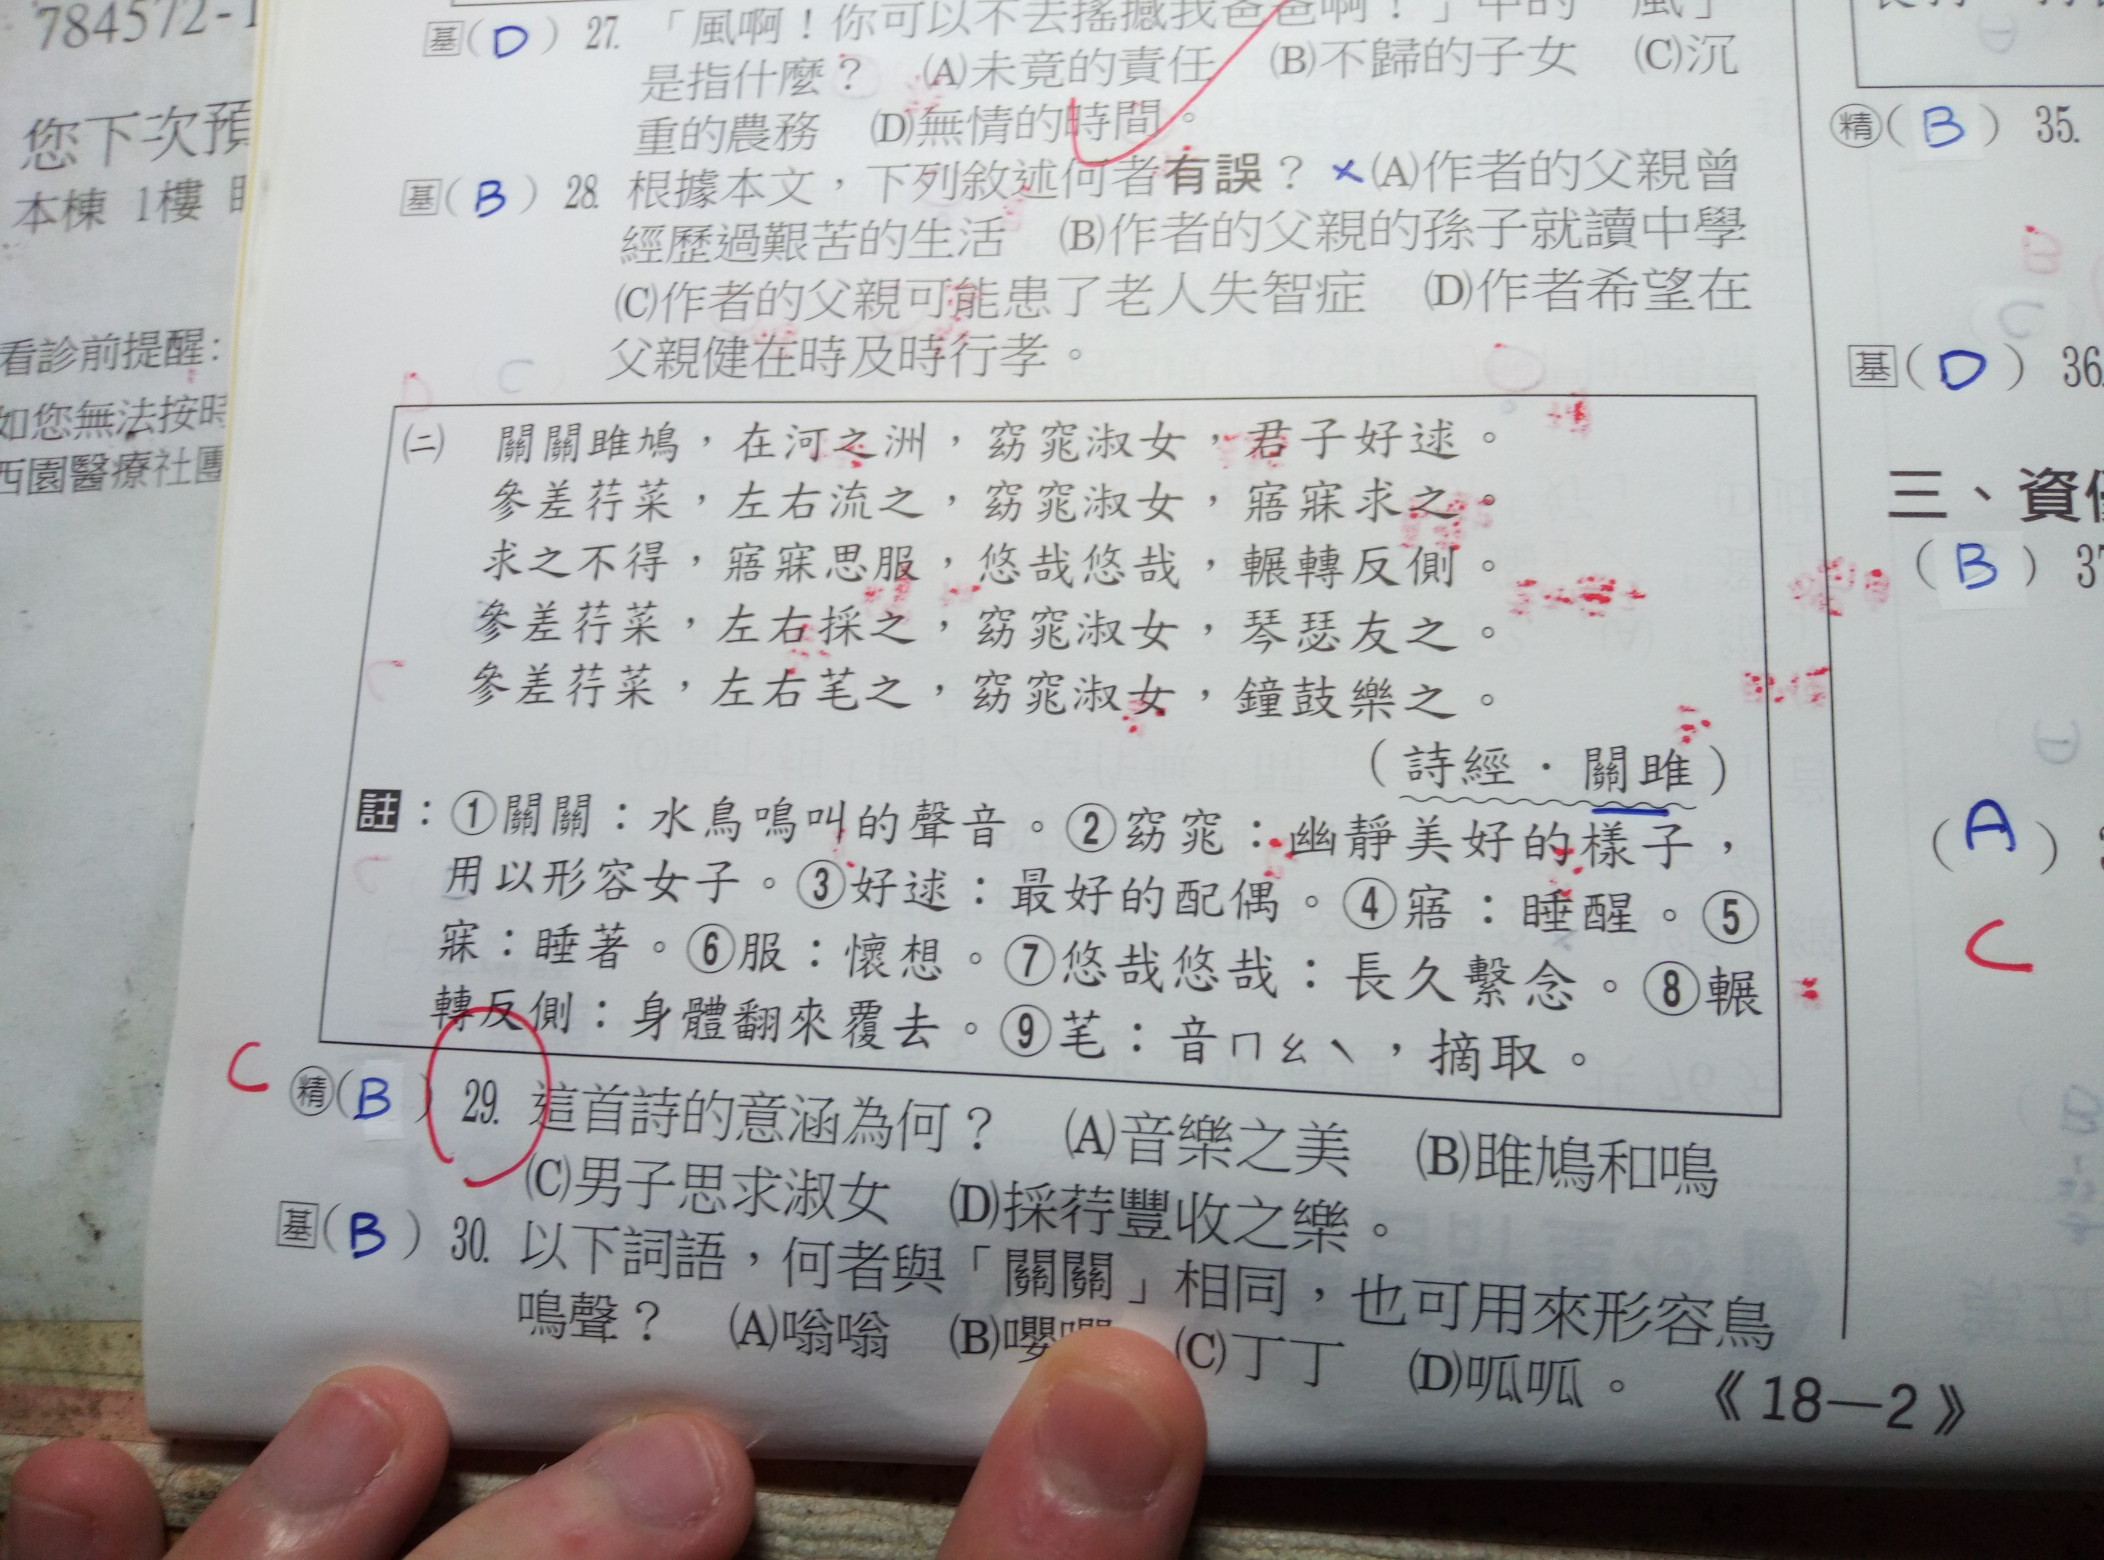 784572-1
您下次預
本棟 1樓
看診前提醒：
如您無法按時
西園醫療社團
基(D) 27. 「風啊！你可以不去搖撼我爸爸啊！」中的「風」
是指什麼？ (A)未竟的責任 (B)不歸的子女 (C)沉
重的農務 (D)無情的時間。
基(B) 28. 根據本文，下列敘述何者有誤？ ×(A)作者的父親曾
經歷過艱苦的生活 (B)作者的父親的孫子就讀中學
(C)作者的父親可能患了老人失智症 (D)作者希望在
父親健在時及時行孝。
㈡ 關關雎鳩，在河之洲，窈窕淑女，君子好逑。
參差荇菜，左右流之，窈窕淑女，寤寐求之。
求之不得，寤寐思服，悠哉悠哉，輾轉反側。
參差荇菜，左右採之，窈窕淑女，琴瑟友之。
參差荇菜，左右芼之，窈窕淑女，鐘鼓樂之。
（詩經．關雎）
註：①關關：水鳥鳴叫的聲音。②窈窕：幽靜美好的樣子，
用以形容女子。③好逑：最好的配偶。④寤：睡醒。⑤
寐：睡著。⑥服：懷想。⑦悠哉悠哉：長久繫念。⑧輾
轉反側：身體翻來覆去。⑨芼：音ㄇㄠˋ，摘取。
C 精(B) 29. 這首詩的意涵為何？ (A)音樂之美 (B)雎鳩和鳴
(C)男子思求淑女 (D)採荇豐收之樂。
基(B) 30. 以下詞語，何者與「關關」相同，也可用來形容鳥
鳴聲？ (A)嗡嗡 (B)嚶 (C)丁丁 (D)呱呱。
《18—2》
精(B) 35.
基(D) 36.
三、資
(B) 37
(A)
C